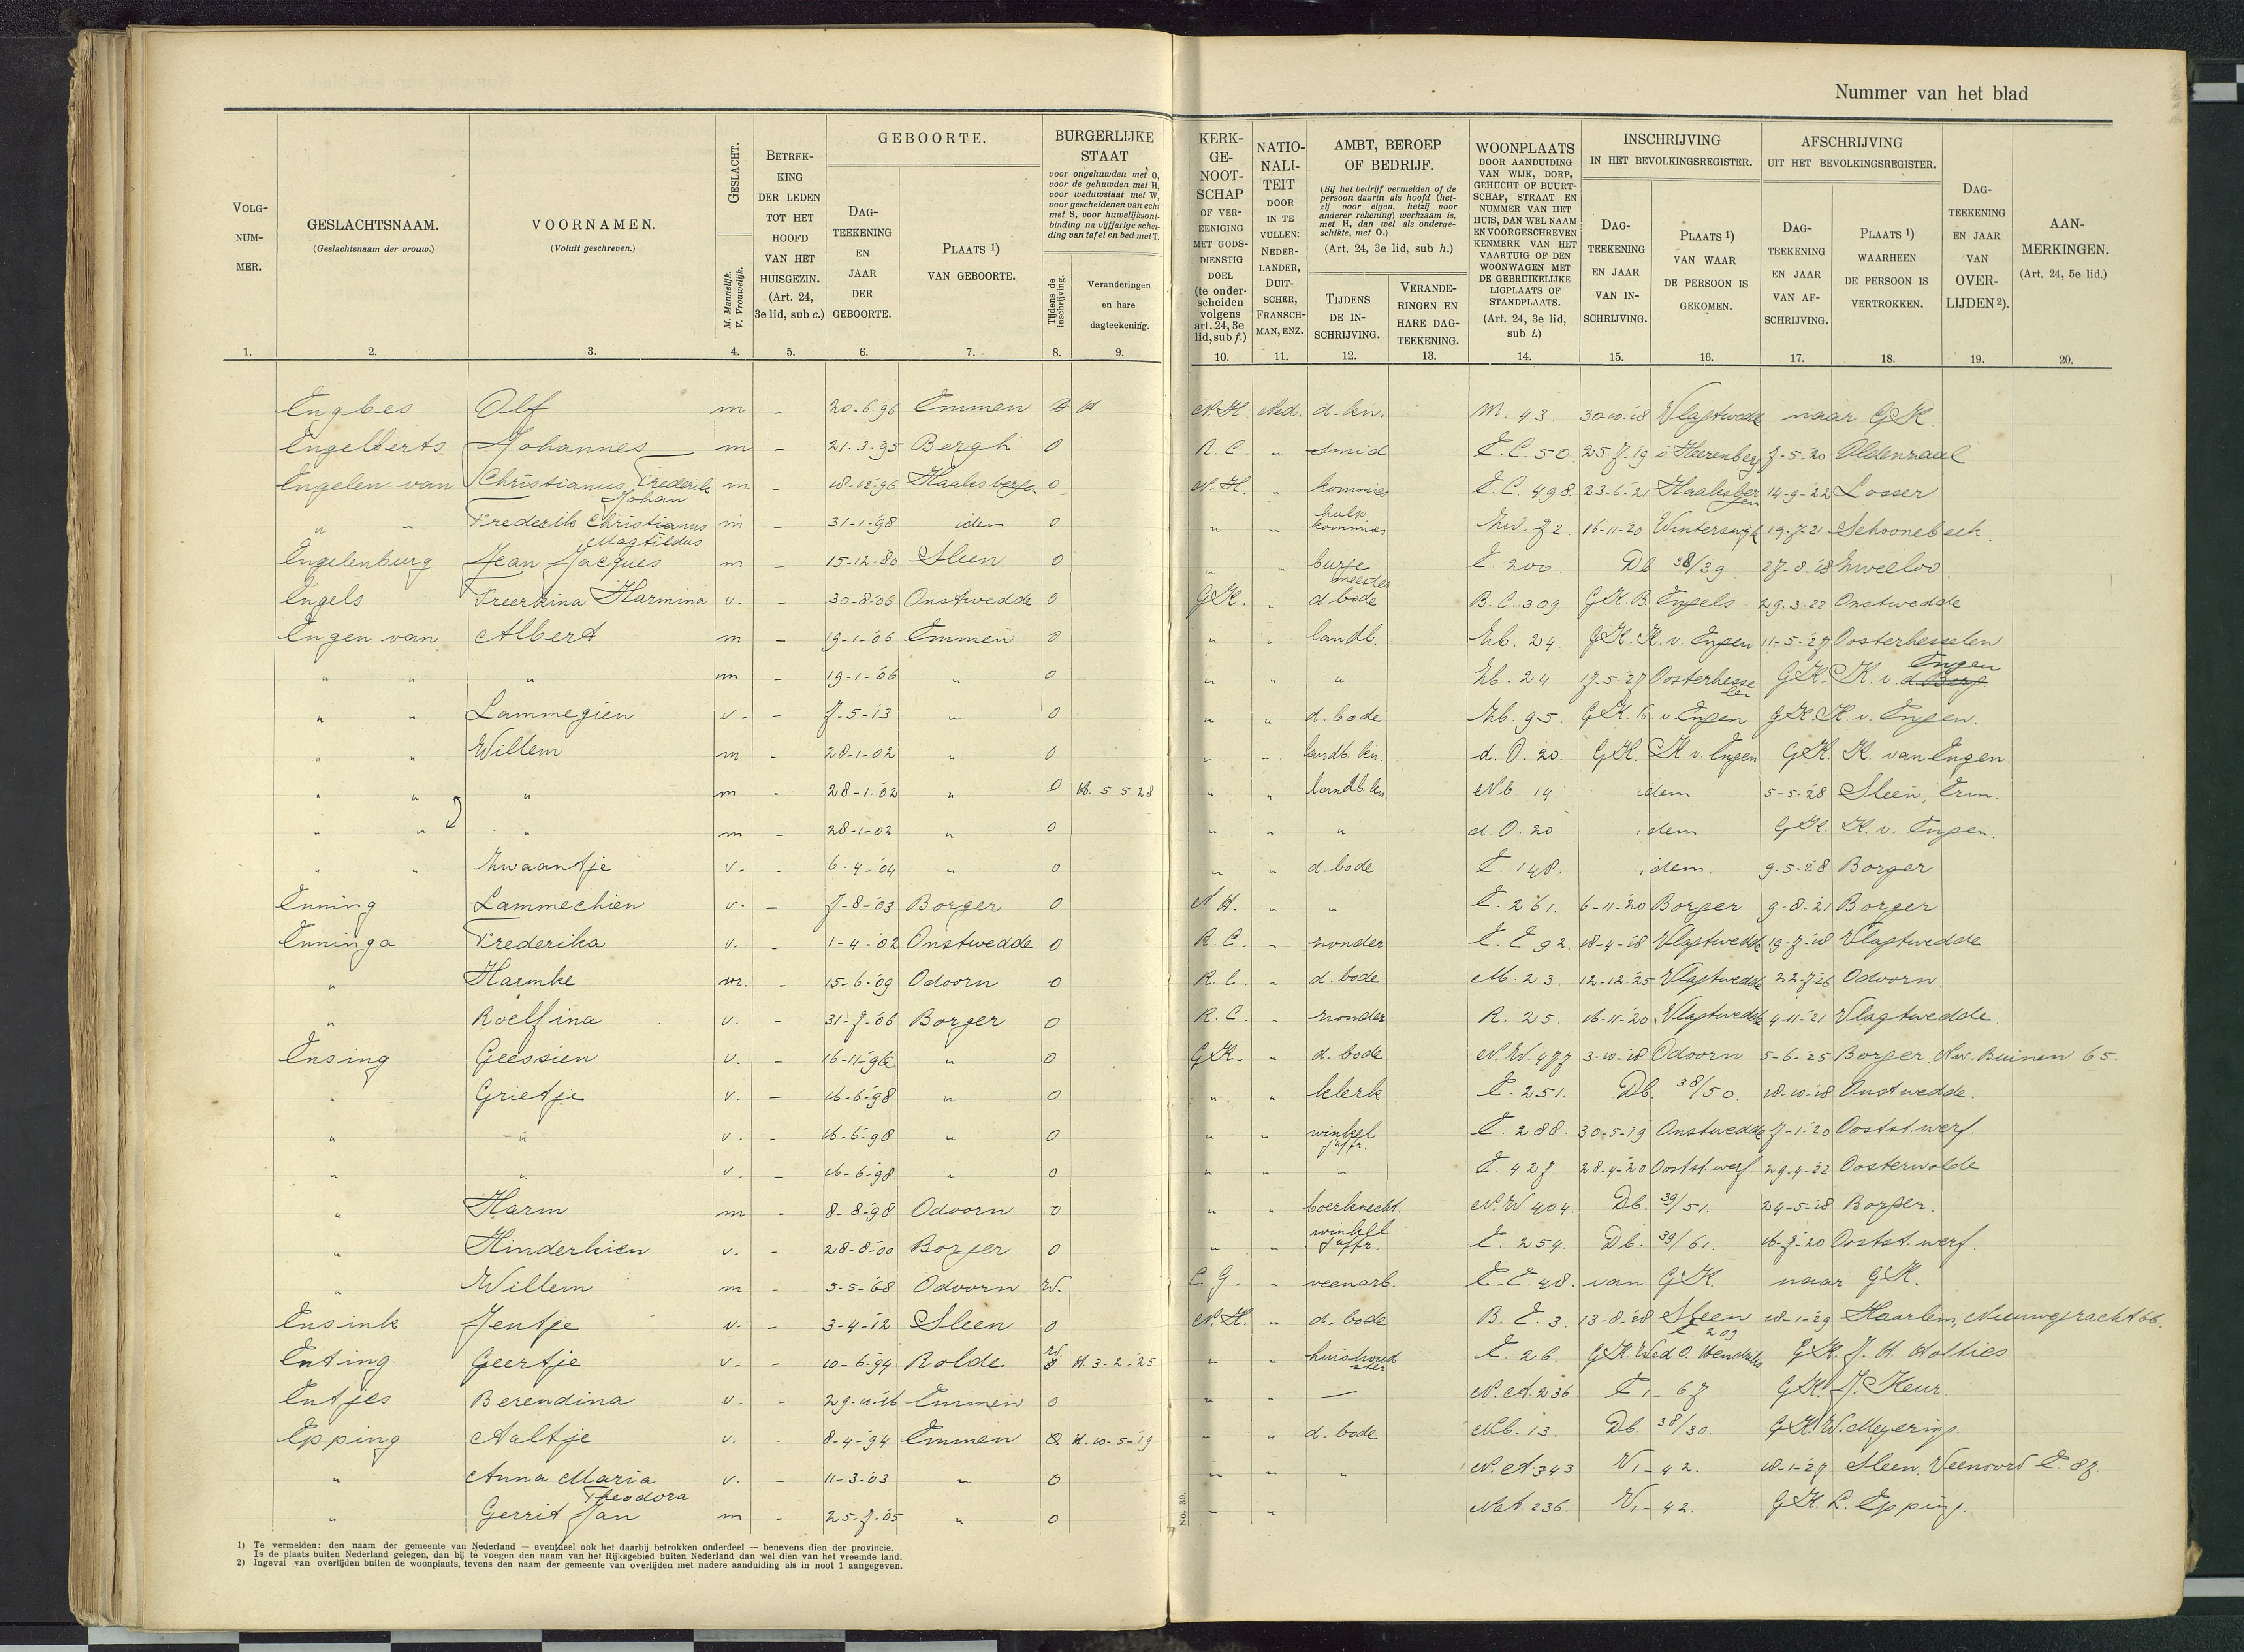 Nummer van het blad
VOLG-NUM-MER.
GESLACHTSNAAM.
(Geslachtsnaam der vrouw.)
VOORNAMEN.
(Voluit geschreven.)
GESLACHT.
M. Mannelijk. V. Vrouwelijk.
BETREK-KING DER LEDEN TOT HET HOOFD VAN HET HUISGEZIN.
(Art. 24, 3e lid, sub c.)
GEBOORTE.
DAG-TEEKENING EN JAAR DER GEBOORTE.
PLAATS 1) VAN GEBOORTE.
BURGERLIJKE STAAT
voor ongehuwden met O, voor de gehuwden met H, voor weduwstaat met W, voor gescheidenen van echt met S, voor huwelijksont-binding na vijfjarige schei-ding van tafel en bed met T.
Tijdens de inschrijving.
Veranderingen en hare dagteekening.
KERK-GE-NOOT-SCHAP OF VER-EENIGING MET GODS-DIENSTIG DOEL
(te onder-scheiden volgens art. 24, 3e lid, sub f.)
NATIO-NALI-TEIT DOOR IN TE VULLEN: NEDER-LANDER, DUIT-SCHER, FRANSCH-MAN, ENZ.
AMBT, BEROEP OF BEDRIJF.
(Bij het bedrijf vermelden of de persoon daarin als hoofd (het-zij voor eigen, hetzij voor anderer rekening) werkzaam is, met H, dan wel als onderge-schikte, met O.)
(Art. 24, 3e lid, sub h.)
TIJDENS DE IN-SCHRIJVING.
VERANDE-RINGEN EN HARE DAG-TEEKENING.
WOONPLAATS DOOR AANDUIDING VAN WIJK, DORP, GEHUCHT OF BUURT-SCHAP, STRAAT EN NUMMER VAN HET HUIS, DAN WEL NAAM EN VOORGESCHREVEN KENMERK VAN HET VAARTUIG OF DEN WOONWAGEN MET DE GEBRUIKELIJKE LIGPLAATS OF STANDPLAATS.
(Art. 24, 3e lid, sub i.)
INSCHRIJVING IN HET BEVOLKINGSREGISTER.
DAG-TEEKENING EN JAAR VAN IN-SCHRIJVING.
PLAATS 1) VAN WAAR DE PERSOON IS GEKOMEN.
AFSCHRIJVING UIT HET BEVOLKINGSREGISTER.
DAG-TEEKENING EN JAAR VAN AF-SCHRIJVING.
PLAATS 1) WAARHEEN DE PERSOON IS VERTROKKEN.
DAG-TEEKENING EN JAAR VAN OVER-LIJDEN 2).
AAN-MERKINGEN.
(Art. 24, 5e lid.)
1. 2. 3. 4. 5. 6. 7. 8. 9. 10. 11. 12. 13. 14. 15. 16. 17. 18. 19. 20.
Engbes Olf m - 20-6-96 Emmen H N.H. Ned. d.kn. M. 43. 30-10-18 Vlagtwedde naar GK.
Engelberts Johannes m - 21-3-95 Bergh O R.C. " smid E.C. 50. 25-7-19 's Heerenberg 7-5-20 Oldenzaal
Engelen van Christianus Frederik Johan m - 18-12-96 Haaksbergen O N.H. " kommies E.C. 498. 23-6-21 Haaksbergen 14-9-22 Losser
" " Frederik Christianus Magtildus m - 31-1-98 idem O " " hulp kommies Zw. 72. 16-11-20 Winterswijk 19-7-21 Schoonebeek.
Engelenburg Jean Jacques m - 15-12-80 Sleen O " " burgemeester E. 200. Db. 38/39 27-8-18 Zweeloo
Engels Freerkina Harmina v. - 30-8-06 Onstwedde O GK. " d.bode B.C. 309. GK. B. Engels 29-3-22 Onstwedde
Engen van Albert m - 19-1-06 Emmen O " " landb. Zb. 24. GK. K. v. Engen 11-5-27 Oosterhesselen
" " " m - 19-1-06 " O " " " Zb. 24 17-5-27 Oosterhesselen GK. K. v. d. Berg Engen
" " Lammegien v. - 7-5-13 " O " " d.bode Zb. 95. GK. K. v. Engen GK. K. v. Engen.
" " Willem m - 28-1-02 " O " " landb. kn. d.O. 20. GK. K. v. Engen GK. K. van Engen.
" " " m - 28-1-02 " O H. 5-5-28 " " landb. kn Nb. 14. idem 5-5-28 Sleen, Erm.
" " " m - 28-1-02 " O " " " d.O. 20 idem GK. K. v. Engen.
" " Zwaantje v. - 6-4-04 " O " " d.bode E. 148. idem. 9-5-28 Borger
Enning Lammechien v. - 7-8-03 Borger O N.H. " " E. 261. 6-11-20 Borger 9-8-21 Borger
Enninga Frederika v. - 1-4-02 Onstwedde O R.C. " zonder E.E. 92. 18-4-18 Vlagtwedde 19-7-18 Vlagtwedde.
" Harmke - 15-6-09 Odoorn O R.C. " d.bode M. 23. 12-12-25 Vlagtwedde 22-7-26 Odoorn.
" Roelfina v. - 31-7-06 Borger O R.C. " zonder R. 25. 16-11-20 Vlagtwedde 4-11-21 Vlagtwedde.
Ensing Geessien v. - 16-11-96 " O GK. " d.bode N.W. 477 3-10-18 Odoorn 5-6-25 Borger, Nw. Buinen 65.
" Grietje v. - 16-6-98 " O " " klerk E. 251. Db. 38/50. 18-10-18 Onstwedde.
" " v. - 16-6-98 " O " " winkel juffr. E. 288. 30-5-19 Onstwedde 7-1-20 Ooststwerf.
" " v. - 16-6-98 " O " " " E. 427 28-4-20 Ooststwerf 29-4-22 Oosterwolde
" Harm m - 8-8-98 Odoorn O " " boerknecht. N.W. 404. Db. 39/51. 24-5-18 Borger.
" Hinderkien v. - 28-8-00 Borger O " " winkel juffr. E. 254. Db. 39/61. 16-7-20 Ooststwerf.
" Willem m - 5-5-68 Odoorn W. C.G. " veenarb. E.E. 48. van GK. naar GK.
Ensink Jentje v. - 3-4-12 Sleen O N.H. " d.bode B.E. 3. 13-8-28 Sleen E. 209 18-1-29 Haarlem, Nieuwegracht 66.
Enting Geertje v. - 10-6-94 Rolde W. H. 3-2-25 " " huishoudster E. 26. GK. Wed O. Hendriks GK. J. H. Holties
Entjes Berendina v. - 29-10-16 Emmen O " " — N.A. 236. E 1-67 GK. J. Keur.
Epping Aaltje v. - 8-4-94 Emmen O H. 10-5-19 " " d.bode Nb. 13. Db. 38/30. GK. W. Meyering.
" Anna Maria Theodora v. - 11-3-03 " O " " " N.A. 343 V1-42. 18-1-27 Sleen, Veenoord E. 87.
" Gerrit Jan m - 25-7-05 " O " " N.A. 236. V1-42. GK. L. Epping.
No. 39.
1) Te vermelden: den naam der gemeente van Nederland — eventueel ook het daarbij betrokken onderdeel — benevens dien der provincie.
Is de plaats buiten Nederland gelegen, dan bij te voegen den naam van het Rijksgebied buiten Nederland dan wel dien van het vreemde land.
2) Ingeval van overlijden buiten de woonplaats, tevens den naam der gemeente van overlijden met nadere aanduiding als in noot 1 aangegeven.